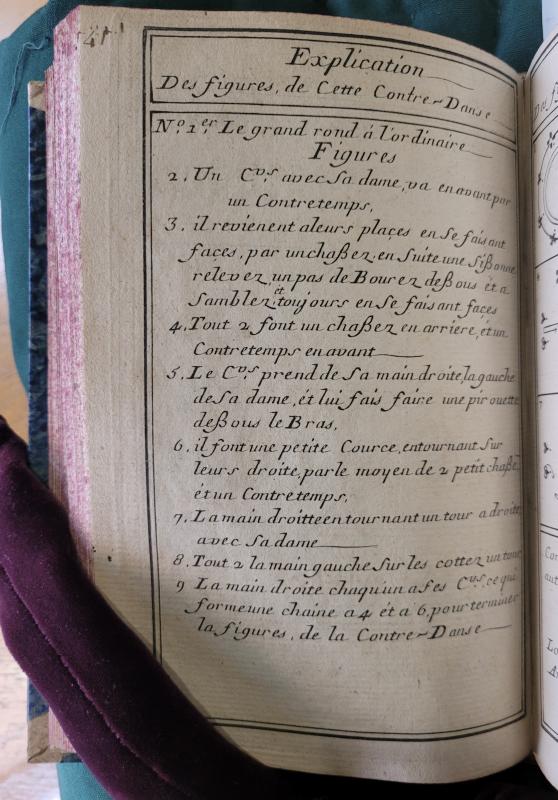 Explication
Des figures, de Cette Contre-Danse
Nº. 1er. Le grand rond á l'ordinaire
Figures
2, Un Cvs. avec Sa dame, va en avant par
un Contretemps,
3, il revienent aleurs plaçes en se faisant
façes, par un chaßez, en Suite une Sißonne
rélevez, un pas de Bourez deßous ét a
Samblez, et toujours en se faisant façes
4, Tout 2 font un chaßez en arriere, ét un
Contretemps en avant
5, Le Cvs. prend de Sa main droite, la gauche
de Sa dame, ét lui fais faire une pirouette
deßous le Bras,
6, il font une petite Cource, entournant Sur
leurs droite, par le moyen de 2 petit chaßez
ét un Contretemps,
7, La main droitte en tournant un tour a droite,
avec Sa dame
8, Tout 2 la main gauche Sur les cottez un tour,
9 La main droite chaqu'un a Ses Cvs. ce qui
forme une chaine a 4 ét a 6, pour terminer
la figures, de la Contre-Danse